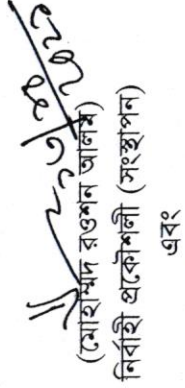 (মোহাম্মদ রওশন আলম)
নির্বাহী প্রকৌশলী (সংস্থাপন)
এবং